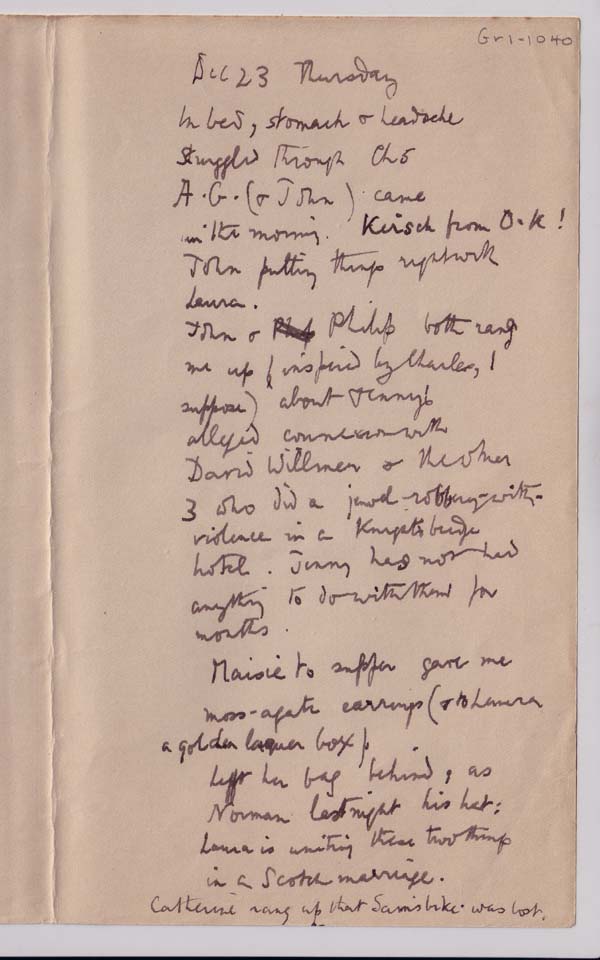 Gr1-1040
Dec 23 Thursday
In bed, stomach & headache
Struggled through Ch 5
A.G. (& John) came
in the morning. Kirsch from O.K!
John putting things right with
Laura.
John & Philip both rang
me up (inspired by Charles, I
suppose) about Jenny's
alleged connexion with
David Willmer & the other
3 who did a jewel-robbery-with-
violence in a Knightsbridge
hotel. Jenny has not had
anything to do with them for
months.
Maisie to supper gave me
moss-agate earrings (& to Laura
a golden laquer box),
left her bag behind, as
Norman last night his hat;
Laura is uniting these two things
in a Scotch marriage.
Catherine rang up that Sam's bike was lost.